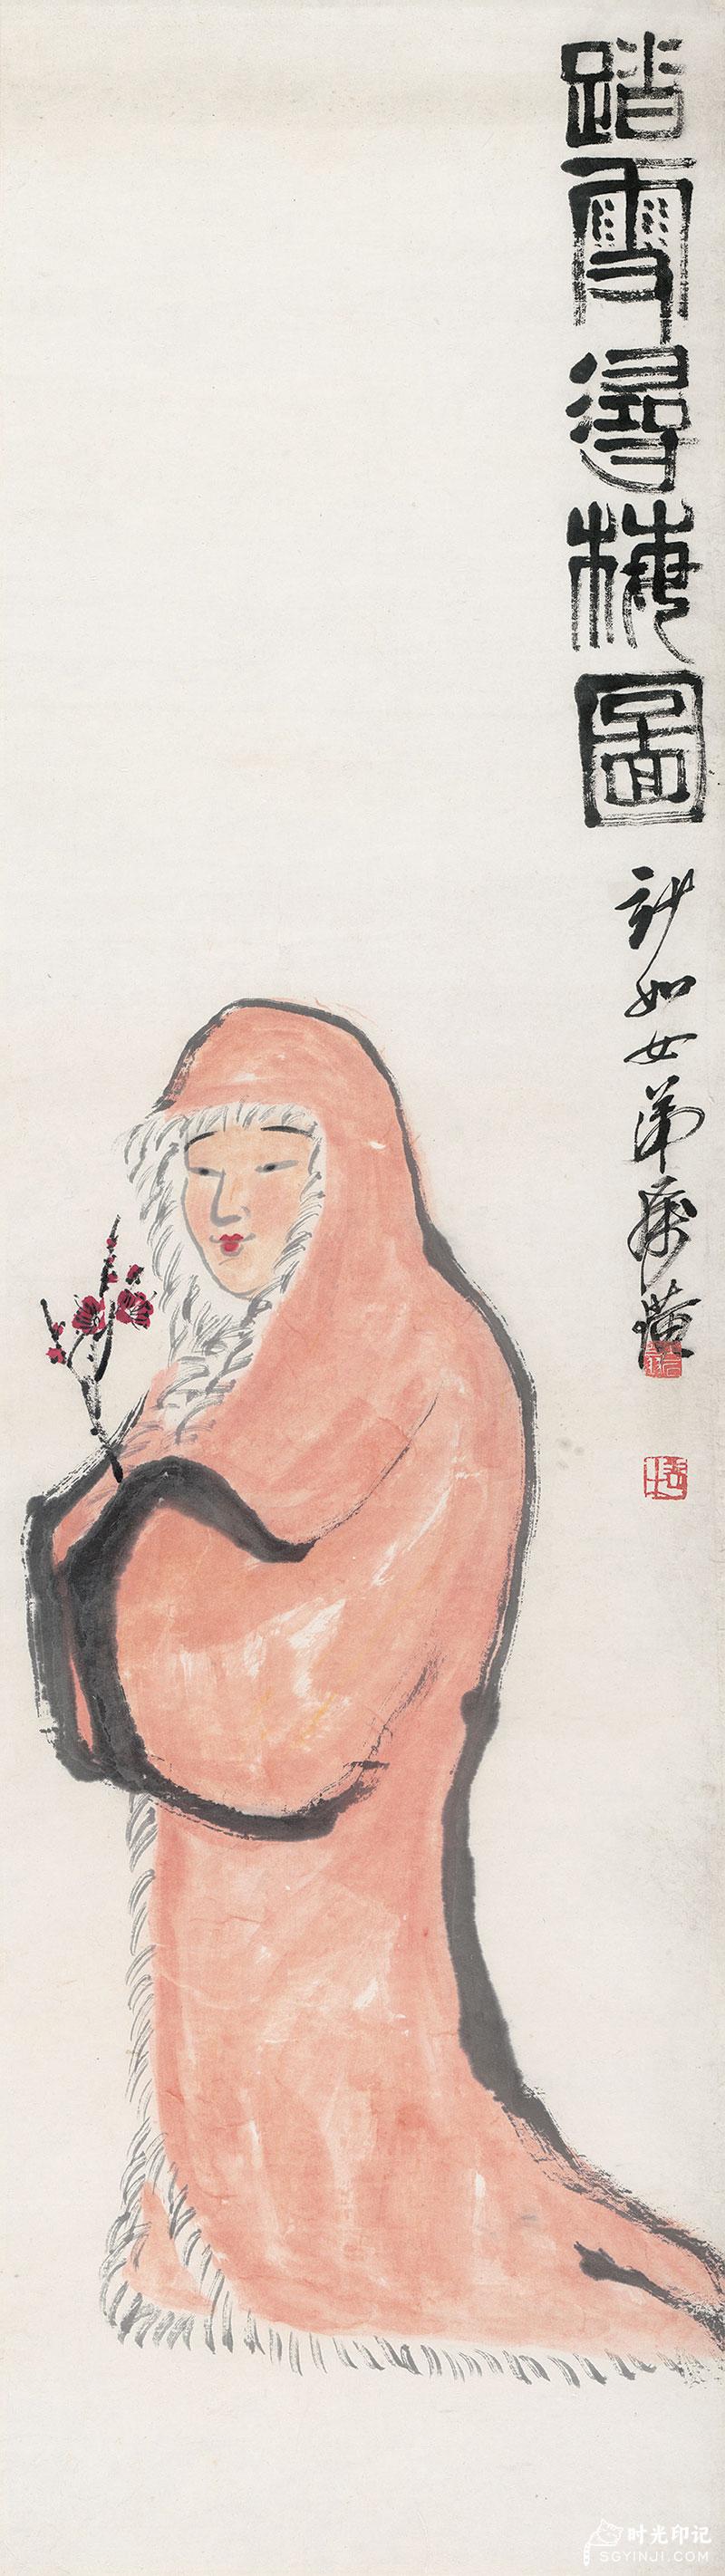 踏雪尋梅圖
如女弟屬 璜
时光印记
SGYINJI.COM